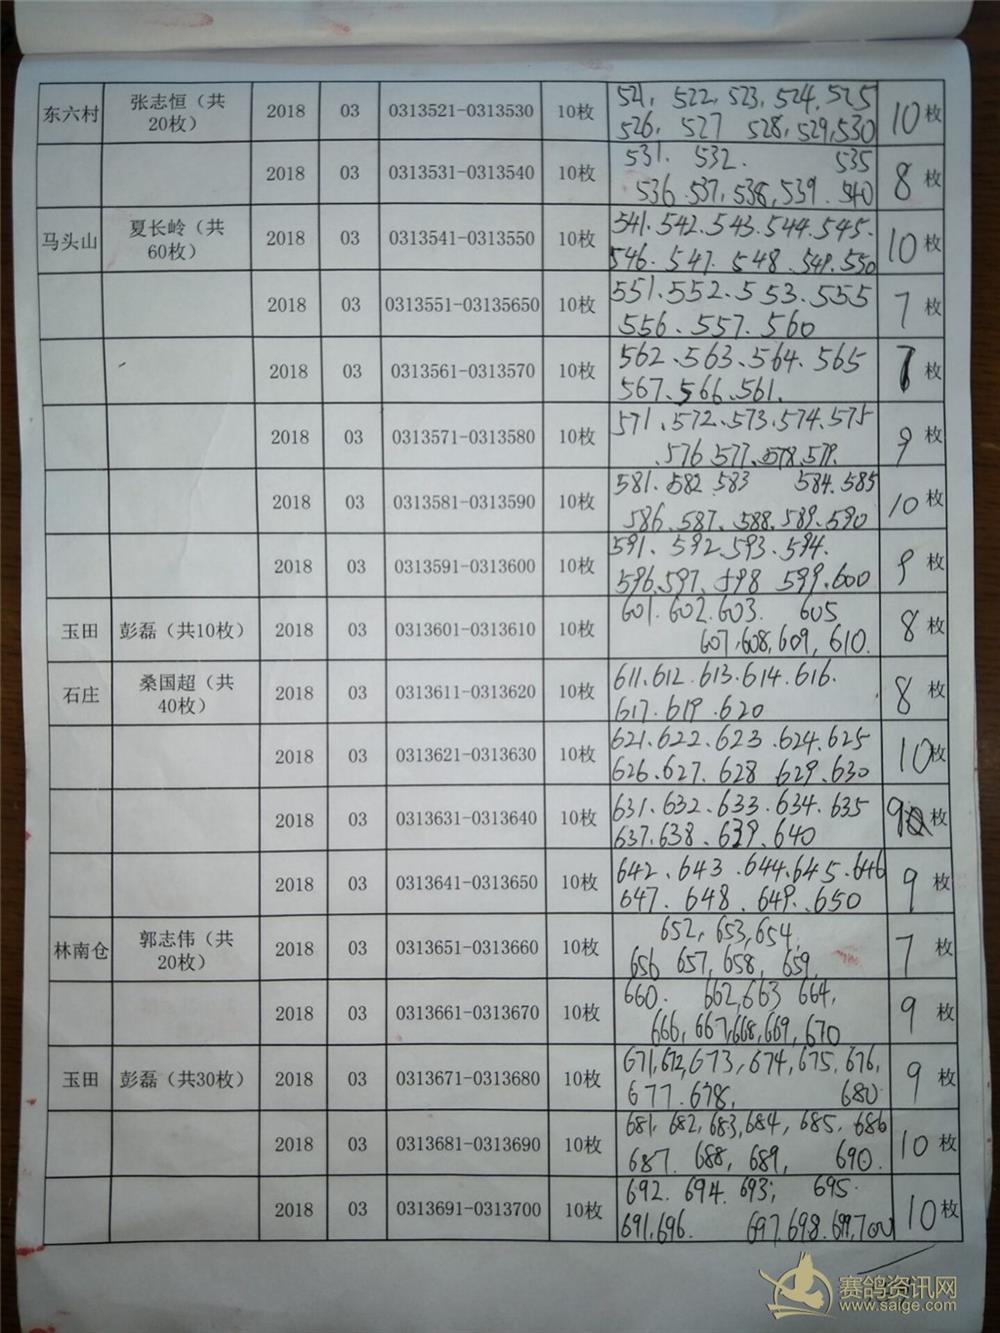 东六村 张志恒（共20枚） 2018 03 0313521-0313530 10枚 521, 522, 523, 524, 525 10枚
526, 527 528, 529, 530
2018 03 0313531-0313540 10枚 531. 532. 535 8枚
536.537, 538, 539. 540
马头山 夏长岭（共60枚） 2018 03 0313541-0313550 10枚 541.542.543.544.545. 10枚
546.547.548.549.550
2018 03 0313551-03135650 10枚 551.552.553.555 7枚
556.557.560
2018 03 0313561-0313570 10枚 562、563、564.565 7枚
567.566.561.
2018 03 0313571-0313580 10枚 571.572.573.574.575 9枚
.576.577.578.579.
2018 03 0313581-0313590 10枚 581.582 583 584.585 10枚
586.587.588.589.590
2018 03 0313591-0313600 10枚 591.592.593.594. 9枚
596.597.598 599.600
玉田 彭磊（共10枚） 2018 03 0313601-0313610 10枚 601.602.603. 605 8枚
607,608,609, 610.
石庄 桑国超（共40枚） 2018 03 0313611-0313620 10枚 611.612.613.614.616. 8枚
617.619.620
2018 03 0313621-0313630 10枚 621.622.623.624.625 10枚
626.627.628 629.630
2018 03 0313631-0313640 10枚 631.632.633.634.635 9枚
637.638.639.640
2018 03 0313641-0313650 10枚 642.643.644.645.646 9枚
647.648.649.650
林南仓 郭志伟（共20枚） 2018 03 0313651-0313660 10枚 652, 653, 654, 7枚
656 657, 658, 659,
2018 03 0313661-0313670 10枚 660. 662,663 664, 9枚
666, 667,668,669, 670
玉田 彭磊（共30枚） 2018 03 0313671-0313680 10枚 671,672,673, 674, 675, 676, 9枚
677.678, 680
2018 03 0313681-0313690 10枚 681, 682, 683,684, 685, 686 10枚
687. 688, 689, 690.
2018 03 0313691-0313700 10枚 692. 694. 693; 695. 10枚
691,696. 697.698.699,700
赛鸽资讯网
www.saige.com